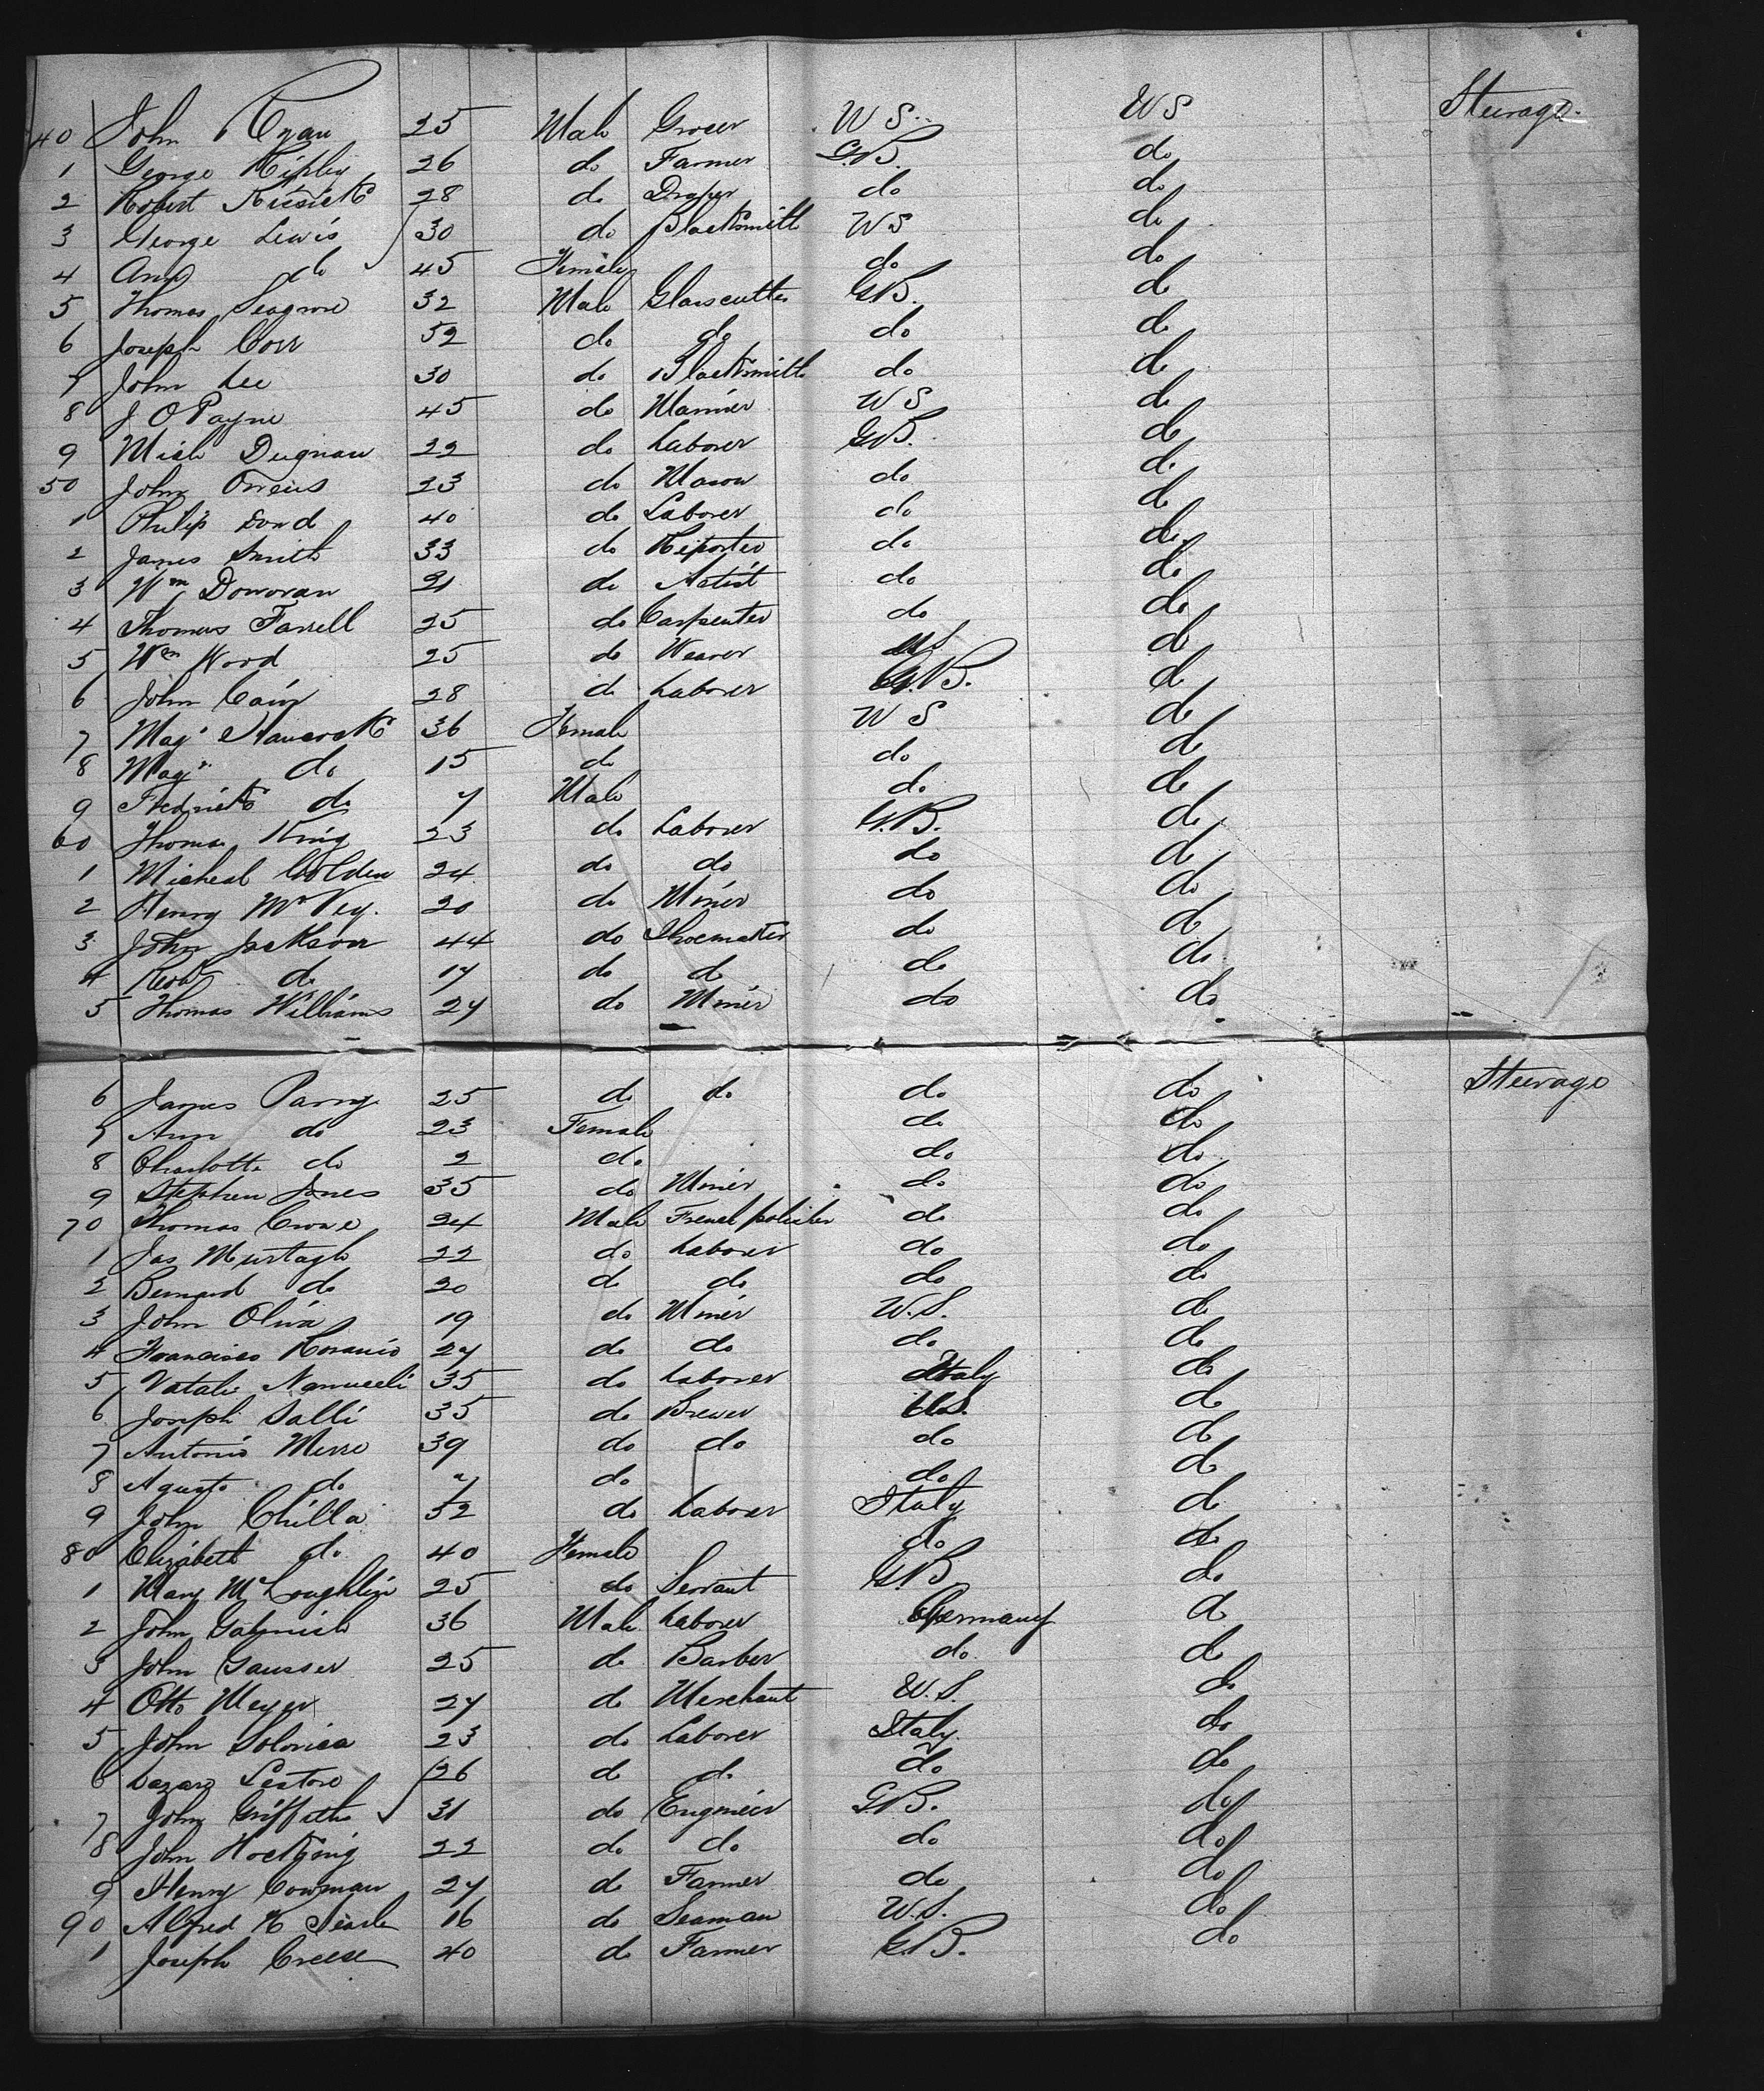 40 John Ryan 25 Male Grocer U S U S Steerage
1 George Ripley 26 do Farmer G.B. do
2 Robert 28 do Draper do do
3 George Lewis 30 do Blacksmith U S do
4 Ann do 45 Female do do
5 Thomas Seagrave 32 Male Glasscutter G.B. do
6 Joseph Corr 52 do do do do
7 John Lee 30 do Blacksmith do do
8 J O Payne 45 do Mariner U S do
9 Mich Dugnan 22 do Laborer G.B. do
50 John Owens 23 do Mason do do
1 Philip Dowd 40 do Laborer do do
2 James Smith 33 do Reporter do do
3 Wm Donovan 21 do Artist do do
4 Thomas Farrell 25 do Carpenter do do
5 Wm Wood 25 do Weaver U S do
6 John Cain 28 do Laborer G.B. do
7 Magt Hancock 36 Female U S do
8 Magt do 15 do do do
9 Fredrick do 7 Male do do
60 Thomas King 23 do Laborer G.B. do
1 Micheal Golden 24 do do do do
2 Henry McVey 20 do Miner do do
3 John Jackson 44 do Shoemaker do do
4 Robt do 17 do do do do
5 Thomas Williams 27 do Miner do do
6 James Parry 25 do do do do Steerage
7 Ann do 23 Female do do
8 Charlotte do 2 do do do
9 Stephen Jones 35 do Miner do do
70 Thomas Crowe 24 Male French polisher do do
1 Jas Murtagh 22 do Laborer do do
2 Bernard do 20 do do do do
3 John Oliva 19 do Miner U.S. do
4 Francisco 27 do do do do
5 Natale Nannuceli 35 do Laborer Italy do
6 Joseph Salli 35 do Brewer U.S. do
7 Antonio Merre 39 do do do do
8 Agusto do 7 do do do
9 John Chilla 52 do Laborer Italy do
80 Elizabeth do 40 Female do do
1 Mary McLoughlin 25 do Servant G.B. do
2 John 36 Male Laborer Germany do
3 John Gausser 25 do Barber do do
4 Otto Meyer 27 do Merchant U.S. do
5 John Solorica 23 do Laborer Italy do
6 Lazaro Lestore 26 do do do do
7 John Griffiths 31 do Engineer G.B. do
8 John Hocking 22 do do do do
9 Henry Cowman 27 do Farmer do do
90 Alfred H Searle 16 do Seaman U.S. do
1 Joseph Creese 40 do Farmer G.B. do